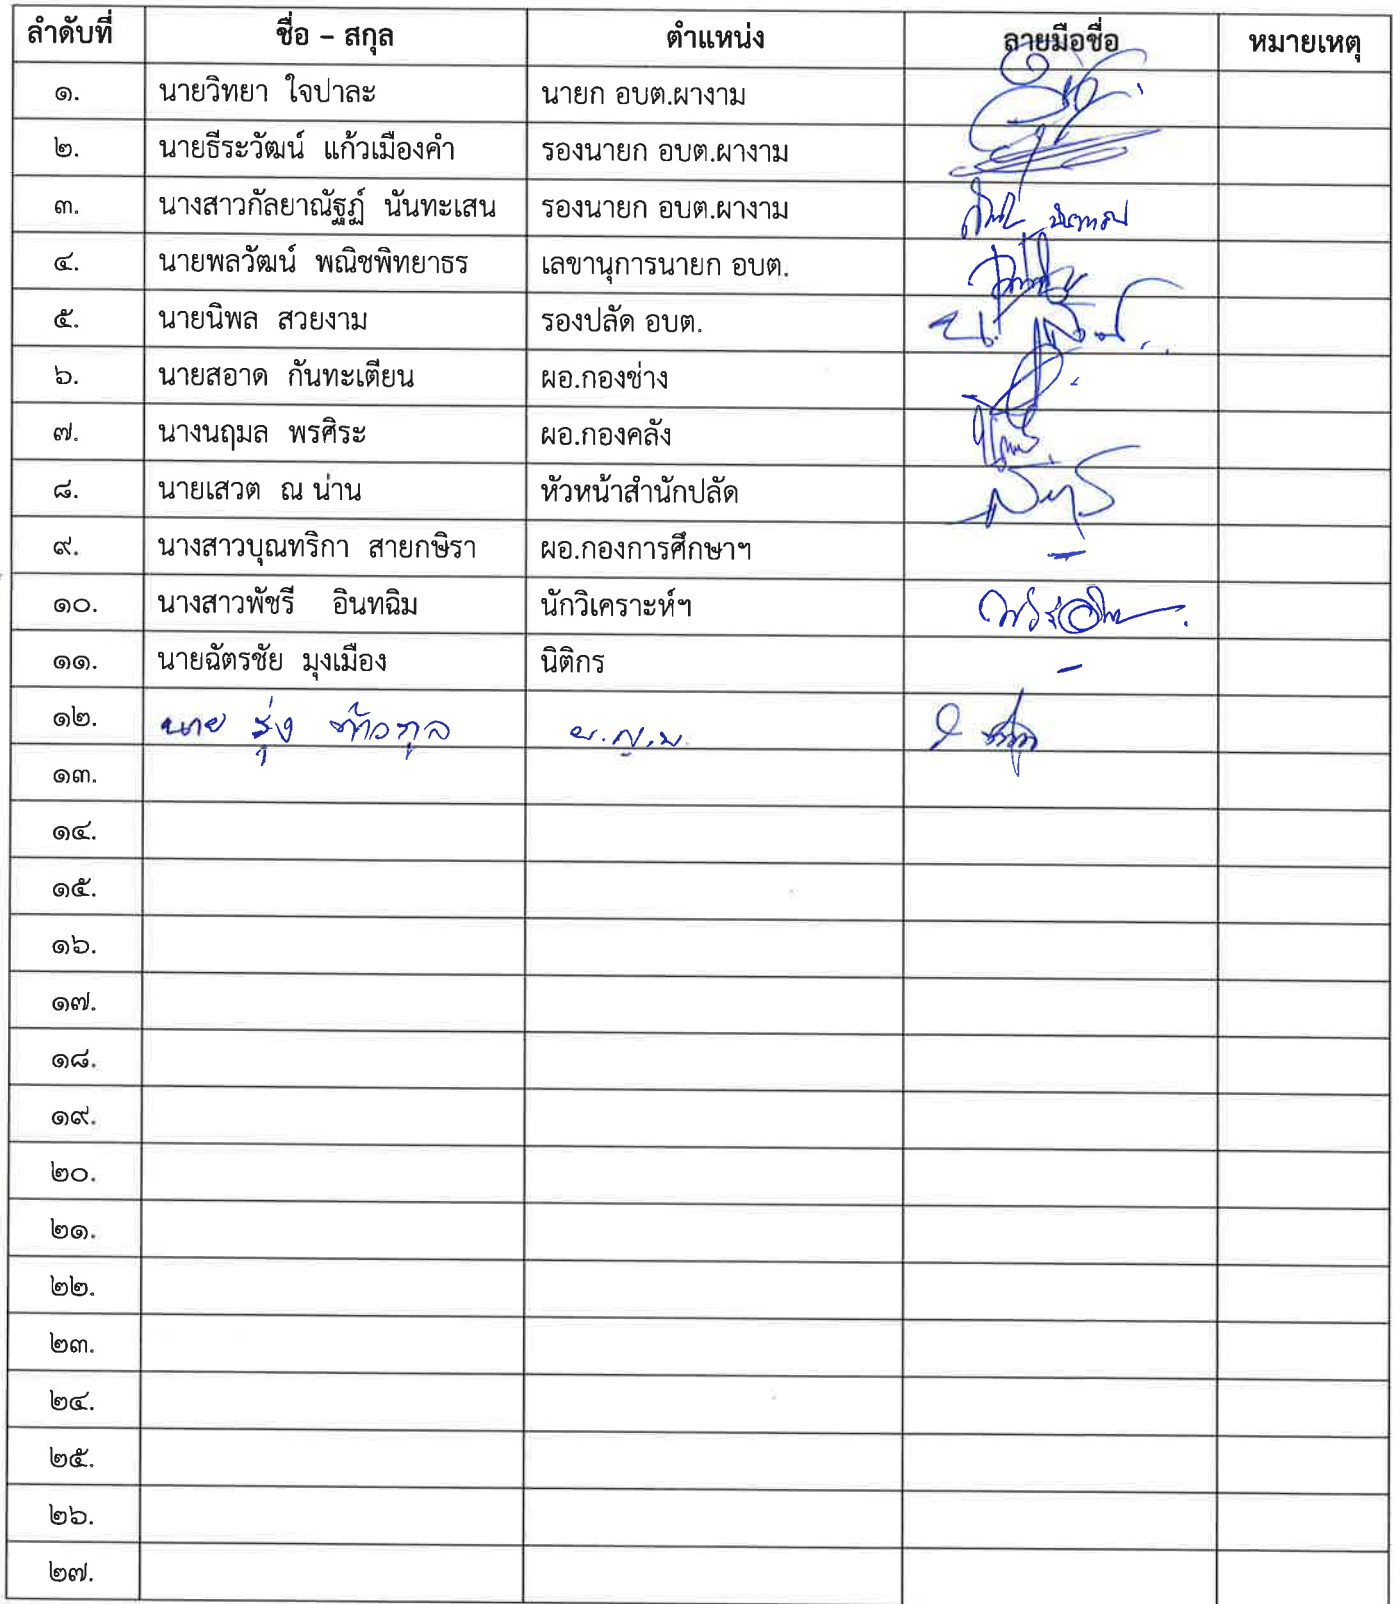 ลำดับที่ ชื่อ – สกุล ตำแหน่ง ลายมือชื่อ หมายเหตุ
๑. นายวิทยา ใจปาละ นายก อบต.ผางาม
๒. นายธีระวัฒน์ แก้วเมืองคำ รองนายก อบต.ผางาม
๓. นางสาวกัลยาณัฐฏ์ นันทะเสน รองนายก อบต.ผางาม
๔. นายพลวัฒน์ พณิชพิทยาธร เลขานุการนายก อบต.
๕. นายนิพล สวยงาม รองปลัด อบต.
๖. นายสอาด กันทะเตียน ผอ.กองช่าง
๗. นางนฤมล พรศิระ ผอ.กองคลัง
๘. นายเสวต ณ น่าน หัวหน้าสำนักปลัด
๙. นางสาวบุณทริกา สายกษิรา ผอ.กองการศึกษาฯ –
๑๐. นางสาวพัชรี อินทฉิม นักวิเคราะห์ฯ
๑๑. นายฉัตรชัย มุงเมือง นิติกร –
๑๒. นาย รุ่ง
๑๓.
๑๔.
๑๕.
๑๖.
๑๗.
๑๘.
๑๙.
๒๐.
๒๑.
๒๒.
๒๓.
๒๔.
๒๕.
๒๖.
๒๗.